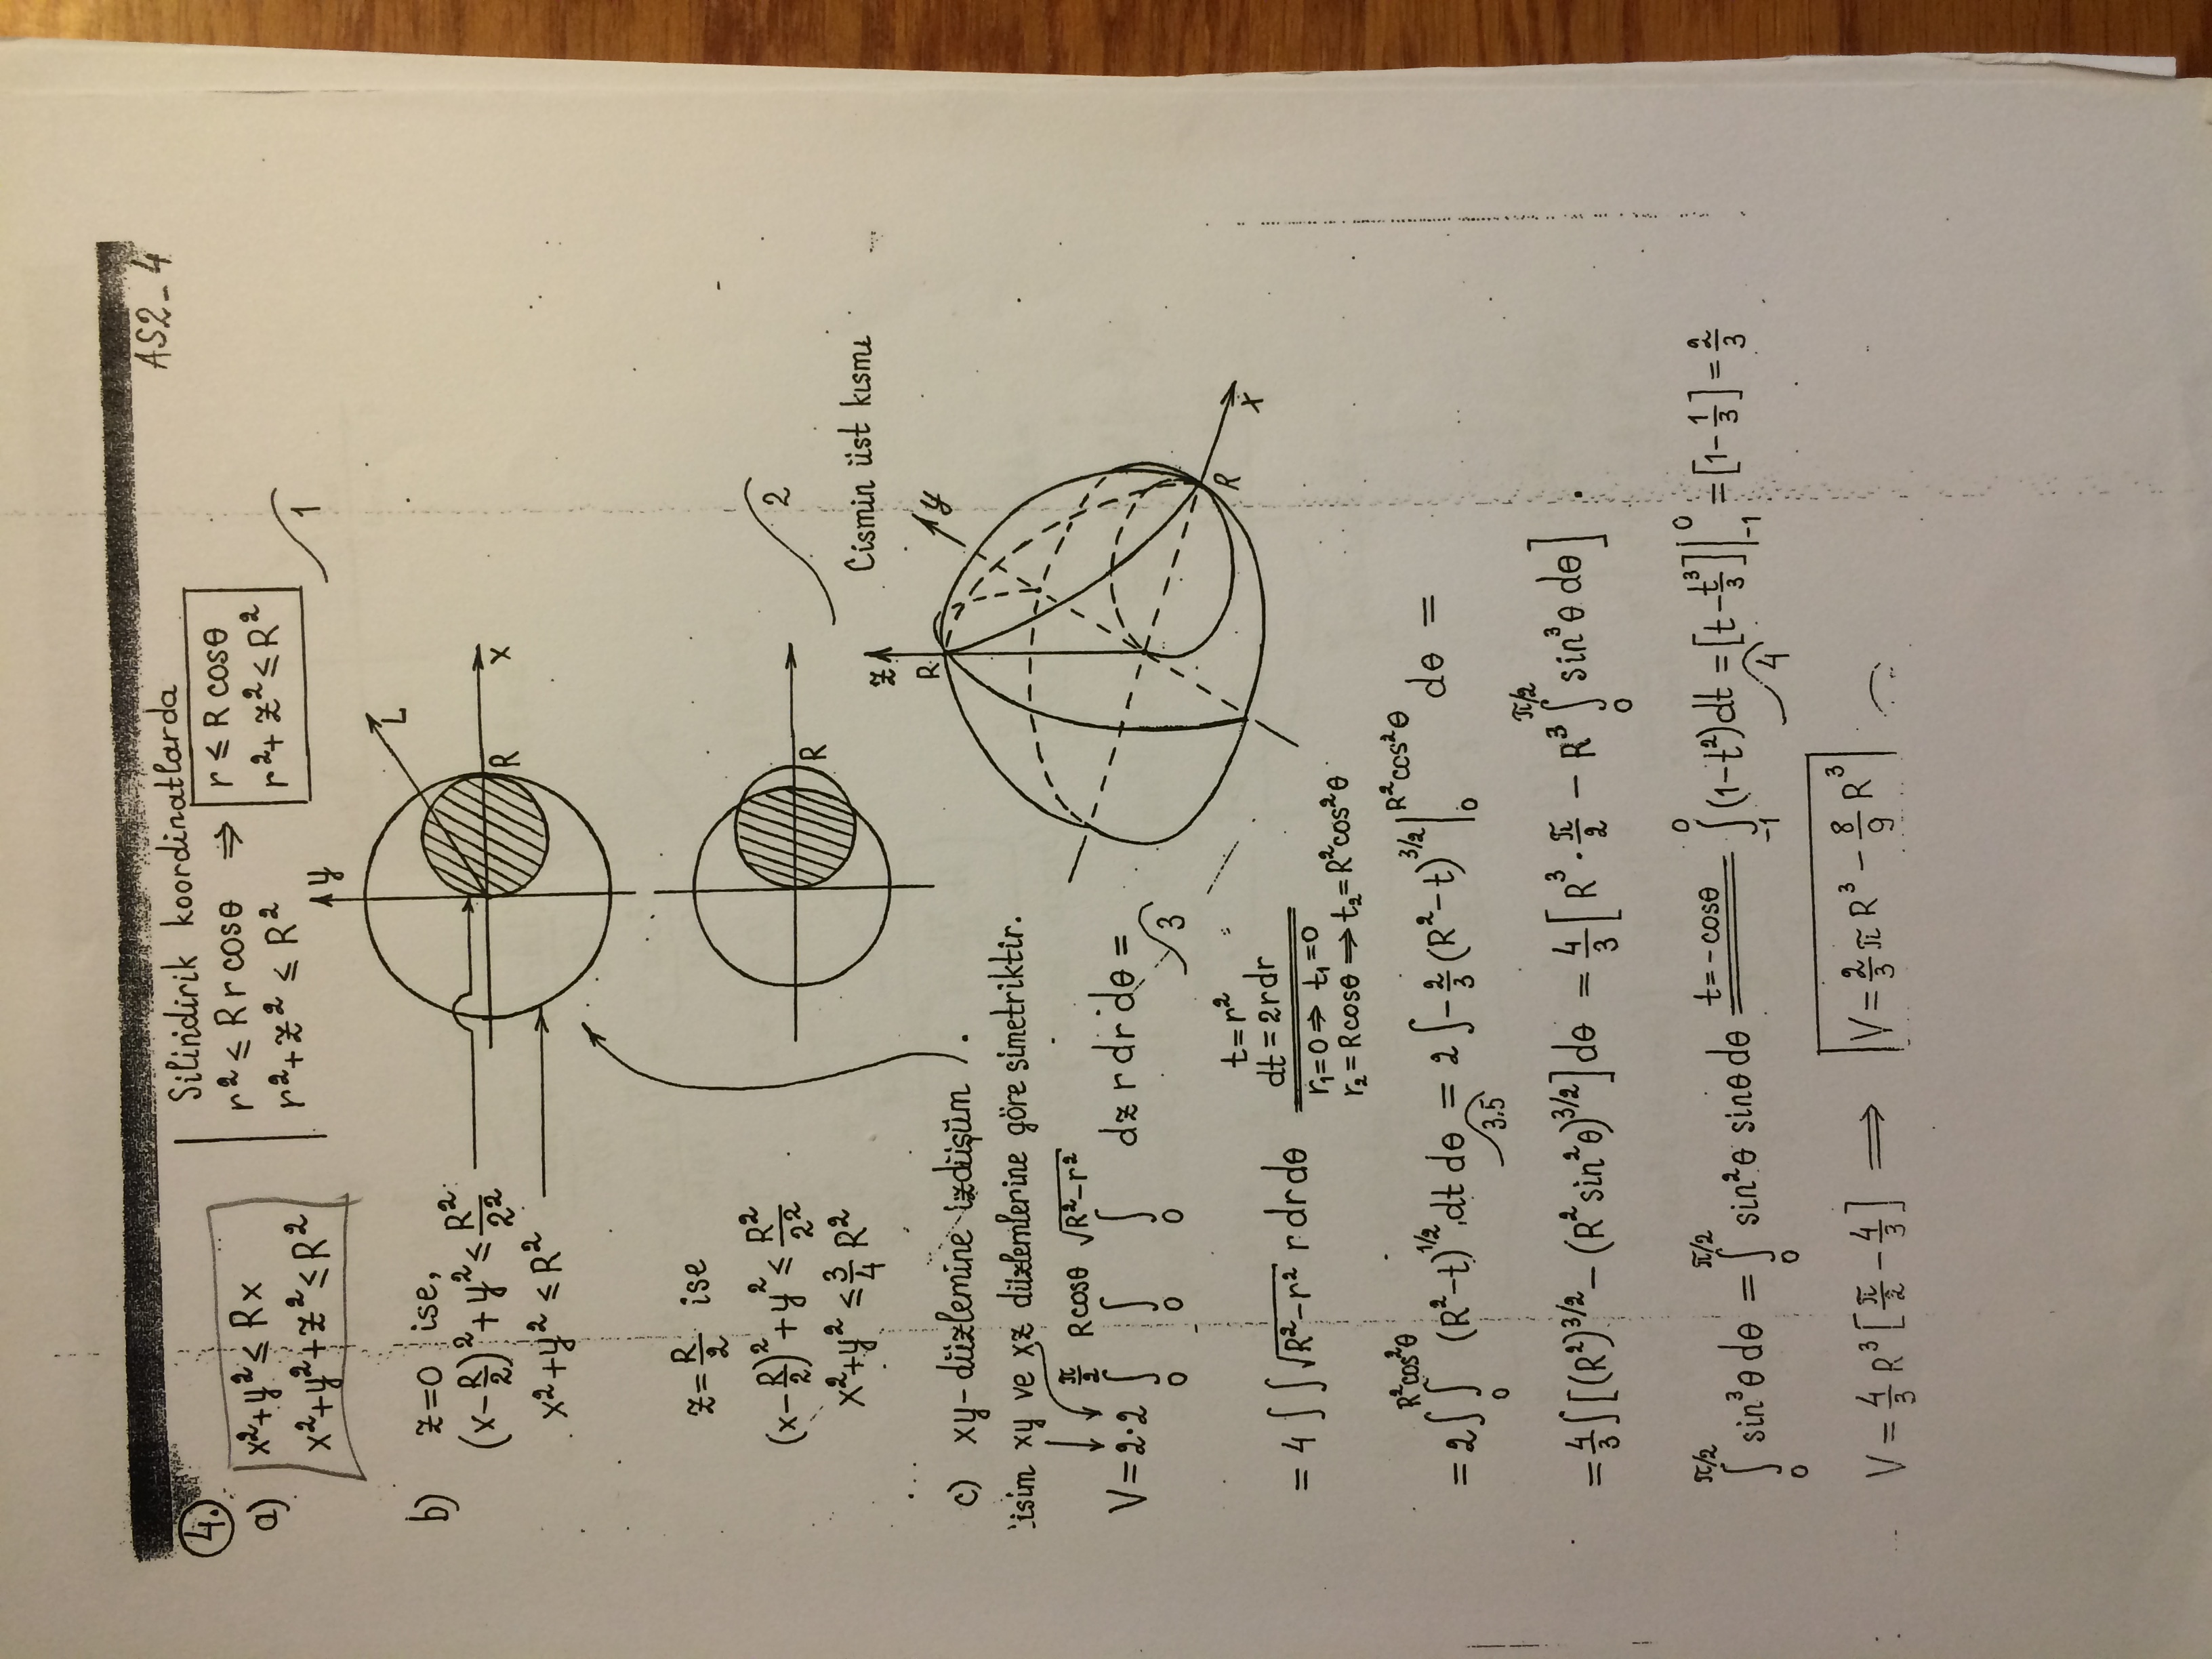 AS2_4
4.
a) x²+y² ≤ Rx
x²+y²+z² ≤ R²
Silindirik koordinatlarda
r² ≤ Rr cosθ ⇒ r ≤ R cosθ
r²+z² ≤ R² r²+z² ≤ R²
1
y
L
R
x
b) z=0 ise,
(x-R/2)²+y² ≤ R²/2²
x²+y² ≤ R²
z=R/2 ise
(x-R/2)²+y² ≤ R²/2²
x²+y² ≤ 3/4 R²
...
R
2
Cismin üst kısmı
z
R
y
R
x
c) xy-düzlemine izdüşüm
isim xy ve xz düzlemlerine göre simetriktir.
V=2·2 ∫₀^(π/2) ∫₀^(Rcosθ) ∫₀^(√(R²-r²)) dz r dr dθ =
3
= 4∫∫√(R²-r²) r dr dθ
t=r²
dt=2rdr
r₁=0 ⇒ t₁=0
r₂=Rcosθ ⇒ t₂=R²cos²θ
= 2∫∫₀^(R²cos²θ) (R²-t)^(1/2) dt dθ = 2∫-2/3 (R²-t)^(3/2) |₀^(R²cos²θ) dθ =
3.5
= 4/3 ∫[(R²)^(3/2) - (R²sin²θ)^(3/2)] dθ = 4/3 [R³·π/2 - R³ ∫₀^(π/2) sin³θ dθ]
∫₀^(π/2) sin³θ dθ = ∫₀^(π/2) sin²θ sinθ dθ =(t=-cosθ)= ∫₋₁⁰ (1-t²)dt = [t-t³/3]|₋₁⁰ = [1-1/3] = 2/3
4
V = 4/3 R³ [π/2 - 4/3] ⇒ V = 2/3 πR³ - 8/9 R³